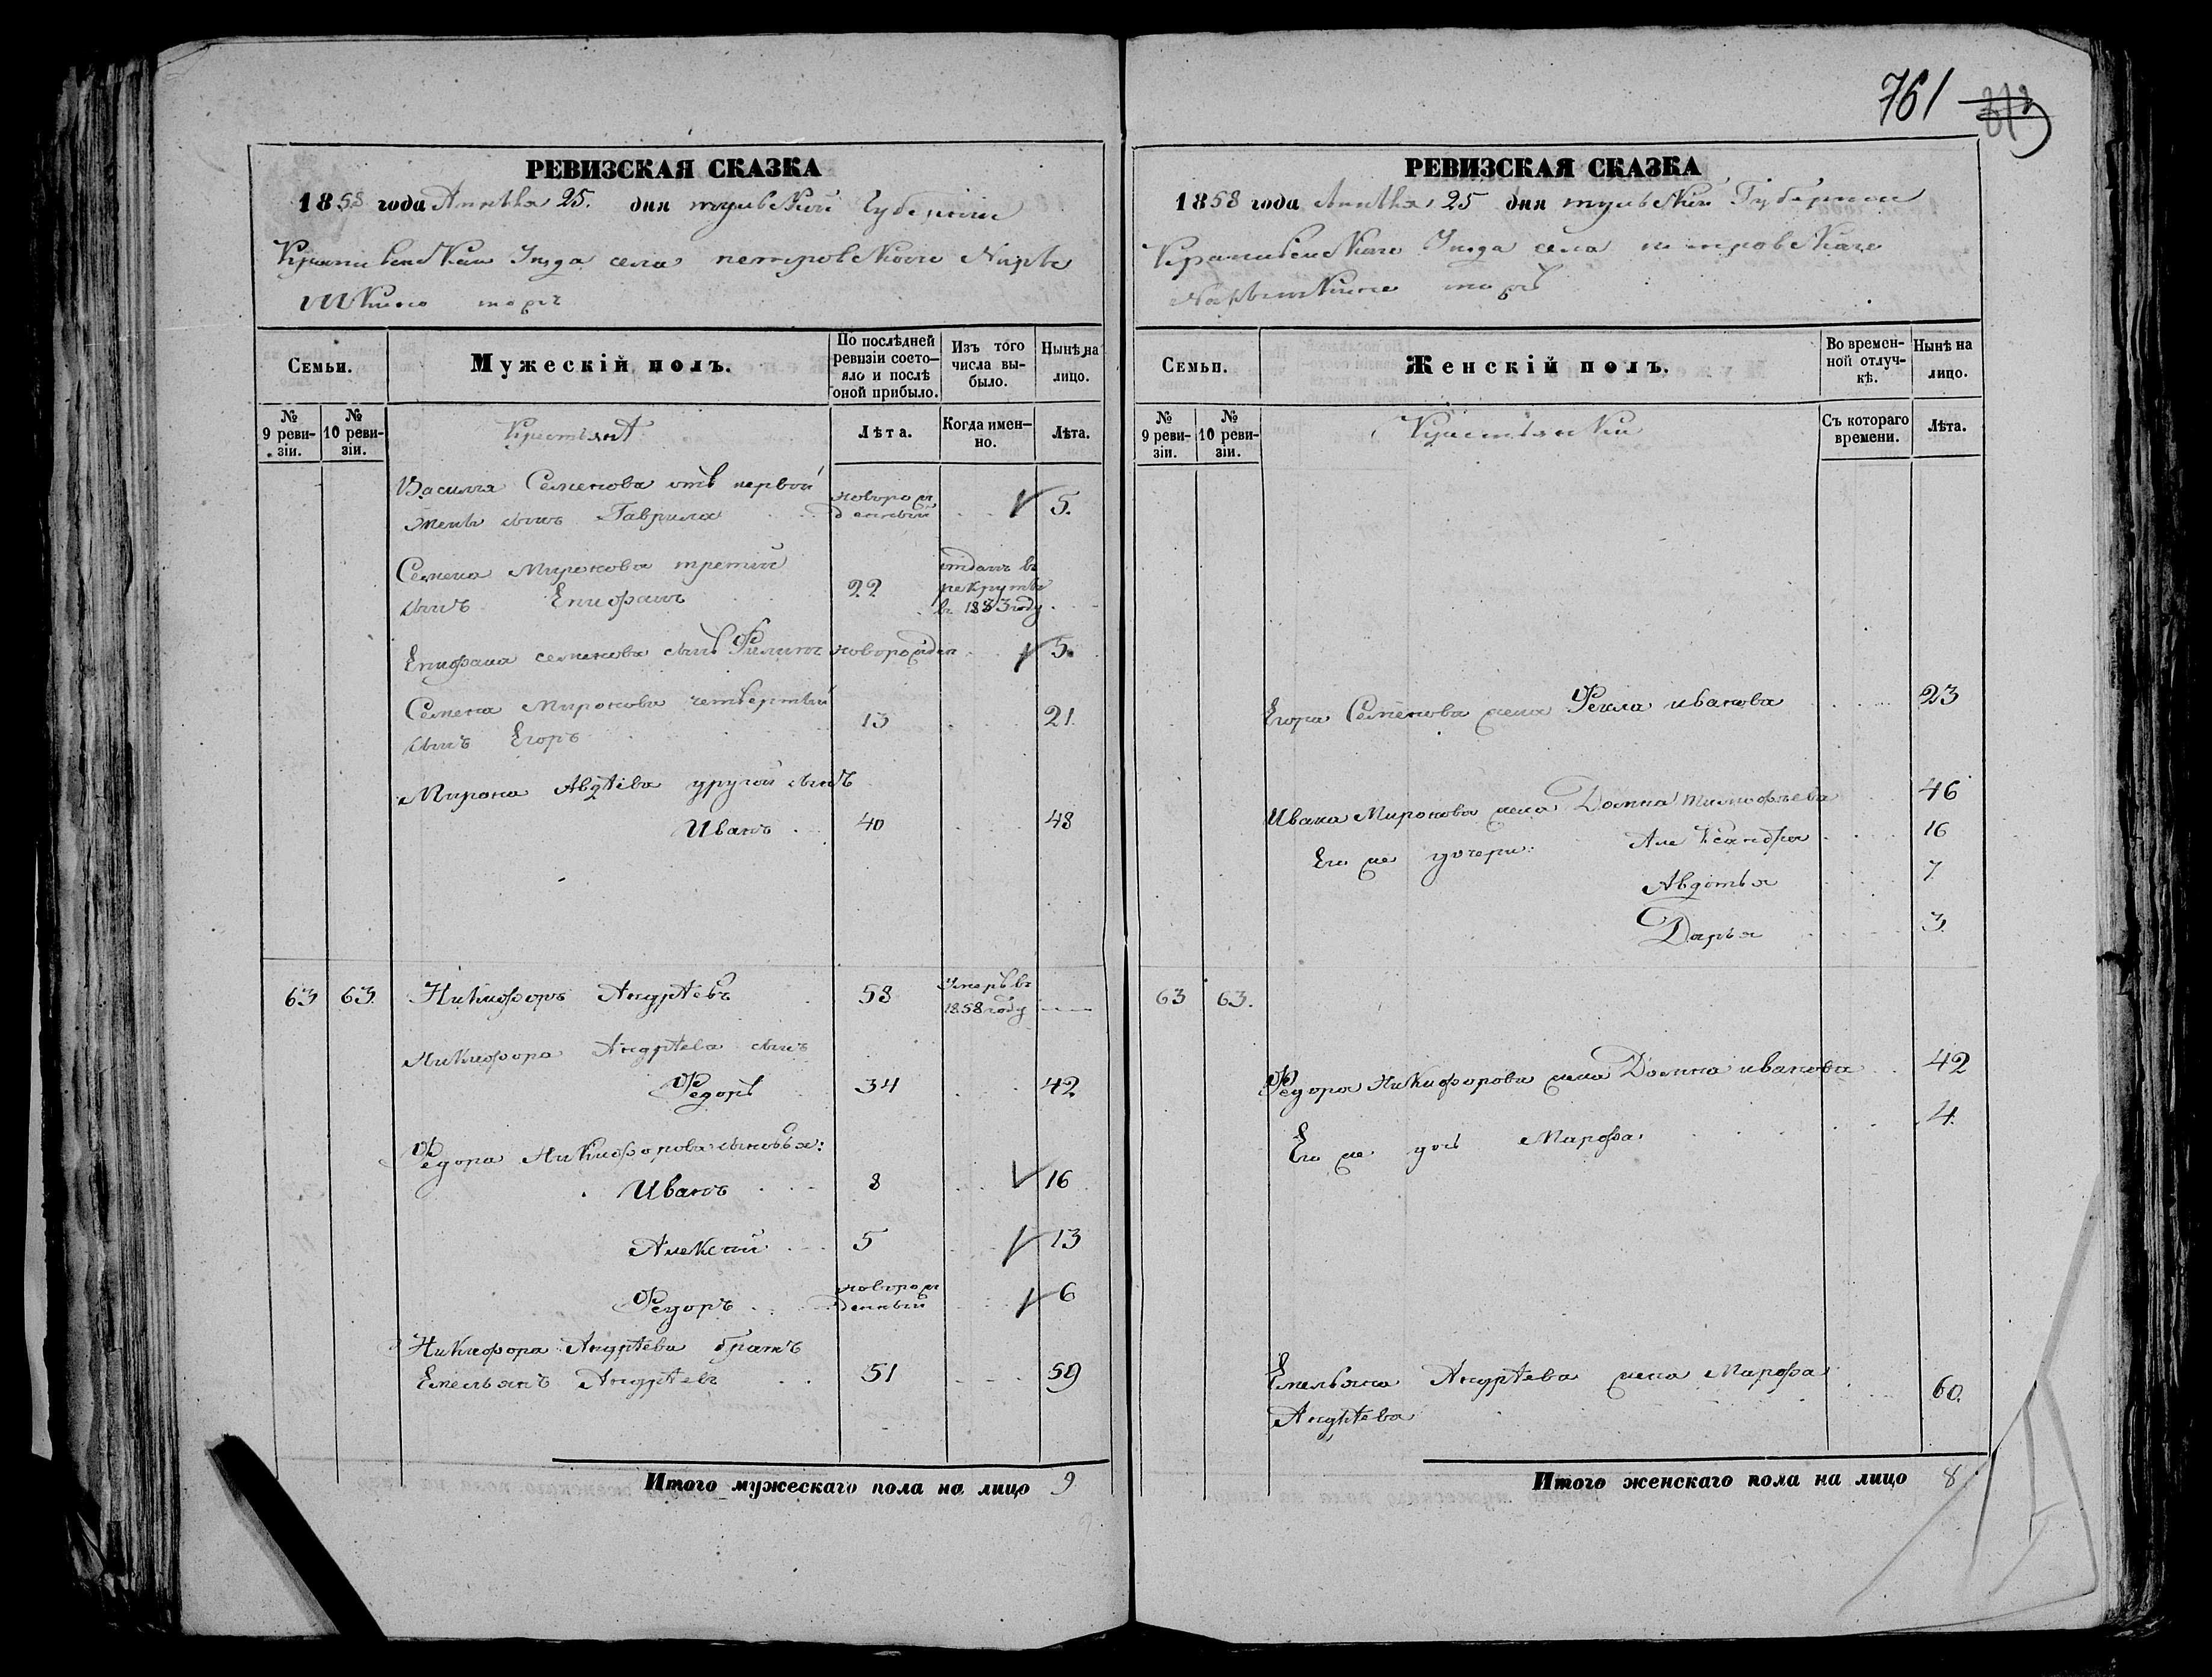 761
РЕВИЗСКАЯ СКАЗКА
1858 года Апреля 25. дня тульской Губернии
Крапивенскаго Уезда села петровскаго
тожъ
Семьи.
Мужескій полъ.
По послѣдней ревизіи состо-
яло и послѣ
оной прибыло.
Изъ того
числа вы-
было.
Нынѣ на
лицо.
№
9 реви-
зіи.
№
10 реви-
зіи.
Лѣта.
Когда имен-
но.
Лѣта.
Крестьянѣ
Василья Семенова отъ первой
жены сынъ Гаврила новорож
денный 5.
Семена Миронова третій
сынъ Епифанъ 22 отданъ въ
рекруты
въ 1853 году
Епифана семенова сынъ Филипъ новорожден 5.
Семена Миронова четвертый
сынъ Егоръ 13 21.
Мирона Авдѣева другой сынъ
Иванъ 40 48
63 63. Никифоръ Андрѣевъ 58 Умеръ въ
1858 году
Никифора Андрѣева сынъ
Федоръ 34 42
Федора Никифорова сыновья:
Иванъ 8 16
Алексѣй 5 13
Федоръ новорож
денный 6
Никифора Андрѣева братъ
Емельянъ Андрѣевъ 51 59
Итого мужескаго пола на лицо 9
РЕВИЗСКАЯ СКАЗКА
1858 года Апреля 25 дня тульской Губернии
Крапивенскаго Уезда села петровскаго
тожъ
Семьи.
Женскій полъ.
Во времен-
ной отлуч-
кѣ.
Нынѣ на
лицо.
№
9 реви-
зіи.
№
10 реви-
зіи.
Съ котораго
времени.
Лѣта.
Крестьянки
Егора Семенова жена Фекла иванова 23
Ивана Миронова жена Домна тимофѣева 46
Его же дочери: Александра 16
Авдотья 7
Дарья 3
63 63.
Федора Никифорова жена Домна иванова 42
Его же дочь Марфа. 4.
Емельяна Андрѣева жена Марфа
Андрѣева 60.
Итого женскаго пола на лицо 8